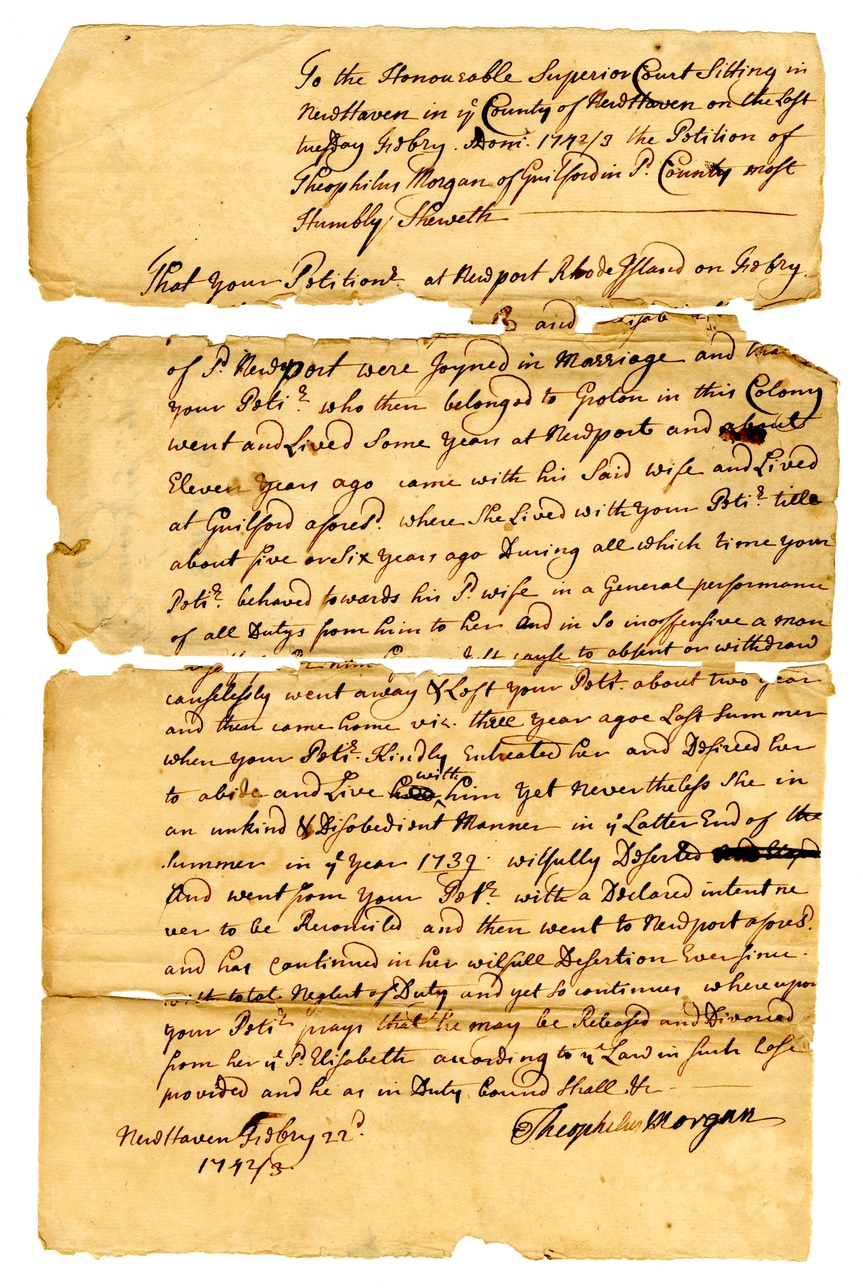 To the Honourable Superior Court Sitting in
NewHaven in yͤ County of NewHaven on the Last
tuesday Febry. Dom: 1742/3 the Petition of
Theophilus Morgan of Guilford in Sd. County most
Humbly Sheweth
That your Petitionr. at Newport Rhode Island on Febry
and Elisab
of Sd. Newport were Joyned in Marriage and that
your Petir. who then belonged to Groton in this Colony
went and Lived Some Years at Newport and about
Eleven Years ago came with his Said wife and Lived
at Guilford aforesd. where She Lived with your Petir. till
about five or Six Years ago During all which time your
Petir. behaved towards his Sd. wife in a General performance
of all Dutys from him to her and in So inoffensive a man
cause to absent or withdraw
causelessly went away & Left your Petr. about two year
and then came home viz. three year agoe Last Summer
when your Petir. Kindly Entreated her and Desired her
to abide and Live with him Yet Nevertheless She in
an unkind & Disobedient Manner in yͤ Latter End of the
Summer in yͤ Year 1739. wilfully Deserted
And went from your Petr. with a Declared intent ne
ver to be Reconciled and then went to Newport aforesd.
and has Continued in her wilfull Desertion Ever Since.
with total Neglect of Duty and yet So continues whereupon
your Petir. prays that he may be Released and Divorced
from her yͤ Sd. Elisabeth according to yͤ Law in Such Case
provided and he as in Duty bound Shall &c
Theophilus Morgan
NewHaven Febry 22d.
1742/3.